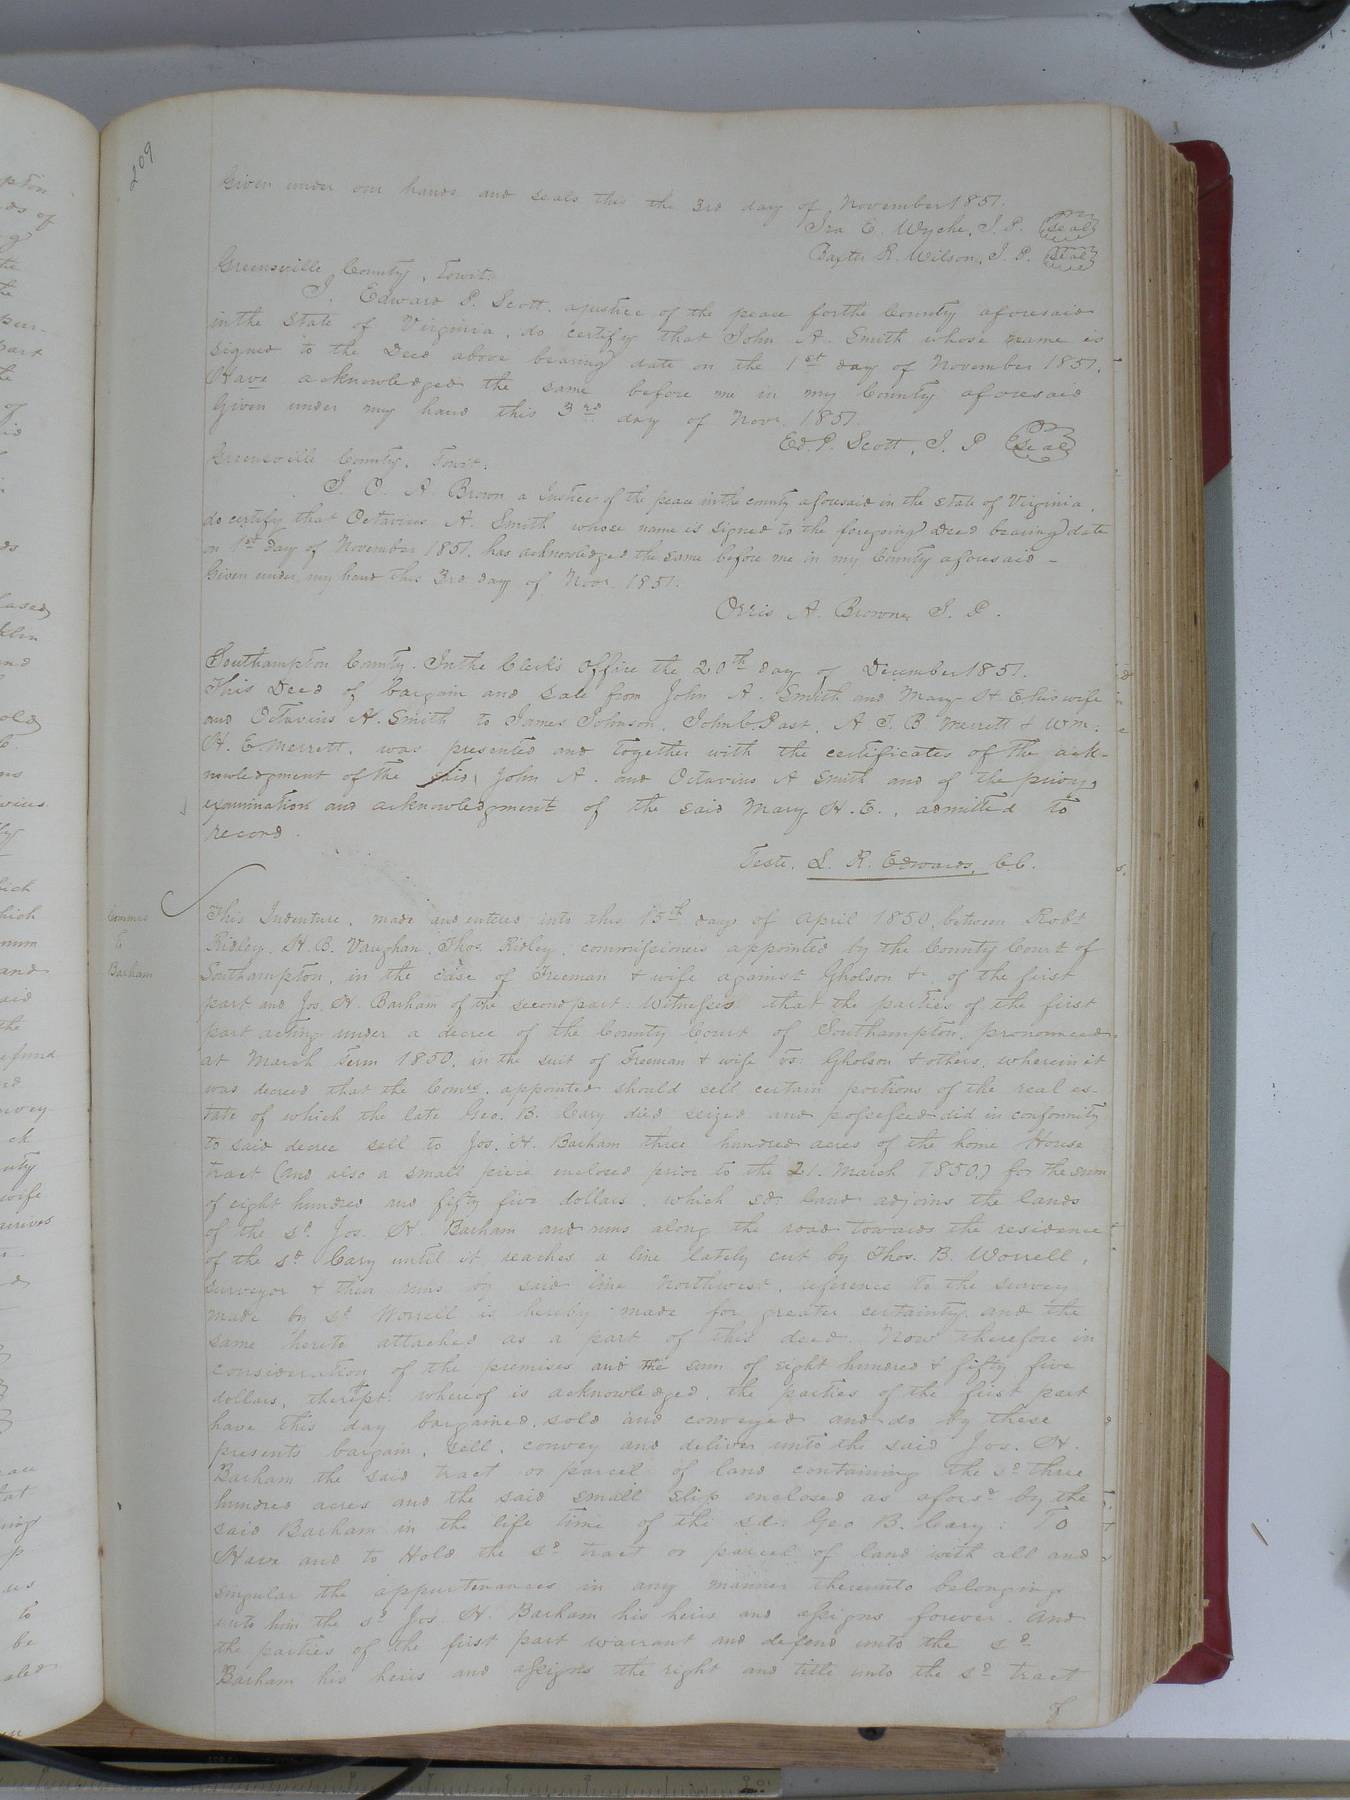 209
Given under our hands and seals this the 3rd day of November 1851.
Ira E. Wyche, J. P. seal
Baxter R. Wilson, J. P. seal
Greensville County, Towit.
I, Edward P. Scott, a justice of the peace for the County aforesaid
in the State of Virginia, do certify that John A. Smith whose name is
signed to the Deed above bearing date on the 1st day of November 1851.
Have acknowledged the same before me in my County aforesaid
Given under my hand this 3rd day of Novr 1851.
Ed. P. Scott, J. P. seal
Greensville County, Towit.
I. O. A. Brown a Justice of the peace in the county aforesaid in the State of Virginia,
do certify that Octavius A. Smith whose name is signed to the foregoing Deed bearing date
on 1st day of November 1851. has acknowledged the same before me in my County aforesaid –
Given under my hand this 3rd day of Novr 1851.
Orris A. Browne, J. P.
Southampton County. In the Clerk's Office the 20th day of December 1851.
This Deed of bargain and sale from John A. Smith and Mary H E his wife
and Octavius A. Smith to James Johnson, John C. , A. J. B. Merrett & Wm.
H. E Merrett, was presented and together with the certificates of the ack-
nowledgment of the said John A. and Octavius A Smith and of the privy
examination and acknowledgment of the said Mary H. E., admitted to
record.
Teste. L. R. Edwards, C.C.
Commrs
To
Barham
This Indenture, made and entered into this 15th day of April 1850, between Robt
Ridley, H. B. Vaughan, Thos. Ridley, commissioners appointed by the County Court of
Southampton, in the case of Freeman & wife against Gholson &c of the first
part and Jos. H. Barham of the second part: Witnesses that the parties of the first
part acting under a decree of the County Court of Southampton, pronounced
at March Term 1850, in the suit of Freeman & wife vs: Gholson & others, wherein it
was decreed that the Comrs appointed should sell certain portions of the real es-
tate of which the late Geo. B. Cary died seized and possessed did in conformity
to said decree sell to Jos. H. Barham three hundred acres of the home House
tract (and also a small piece enclosed prior to the 21. March 1850,) for the sum
of eight hundred and fifty five dollars, which sd. land adjoins the lands
of the sd Jos. H. Barham and runs along the road towards the residence
of the sd Cary until it reaches a line lately cut by Thos. B. Worrell,
surveyor & then runs by said line Northwest, reference to the survey
made by sd Worrell is hereby made for greater certainty and the
same hereto attached as a part of this deed. Now therefore in
consideration of the premises and the sum of eight hundred & fifty five
dollars, the receipt whereof is acknowledged, the parties of the first part
have this day bargained, sold and conveyed and do by these
presents bargain, sell, convey and deliver unto the said Jos. H.
Barham the said tract or parcel of land containing the sd three
hundred acres and the said small slip enclosed as aforsd by the
said Barham in the life time of the sd. Geo B. Cary: To
Have and to Hold the sd tract or parcel of land with all and
singular the appurtenances in any manner thereunto belonging
unto him the sd Jos. H. Barham his heirs and assigns forever. And
the parties of the first part warrant and defend unto the sd
Barham his heirs and assigns the right and title unto the sd tract
of